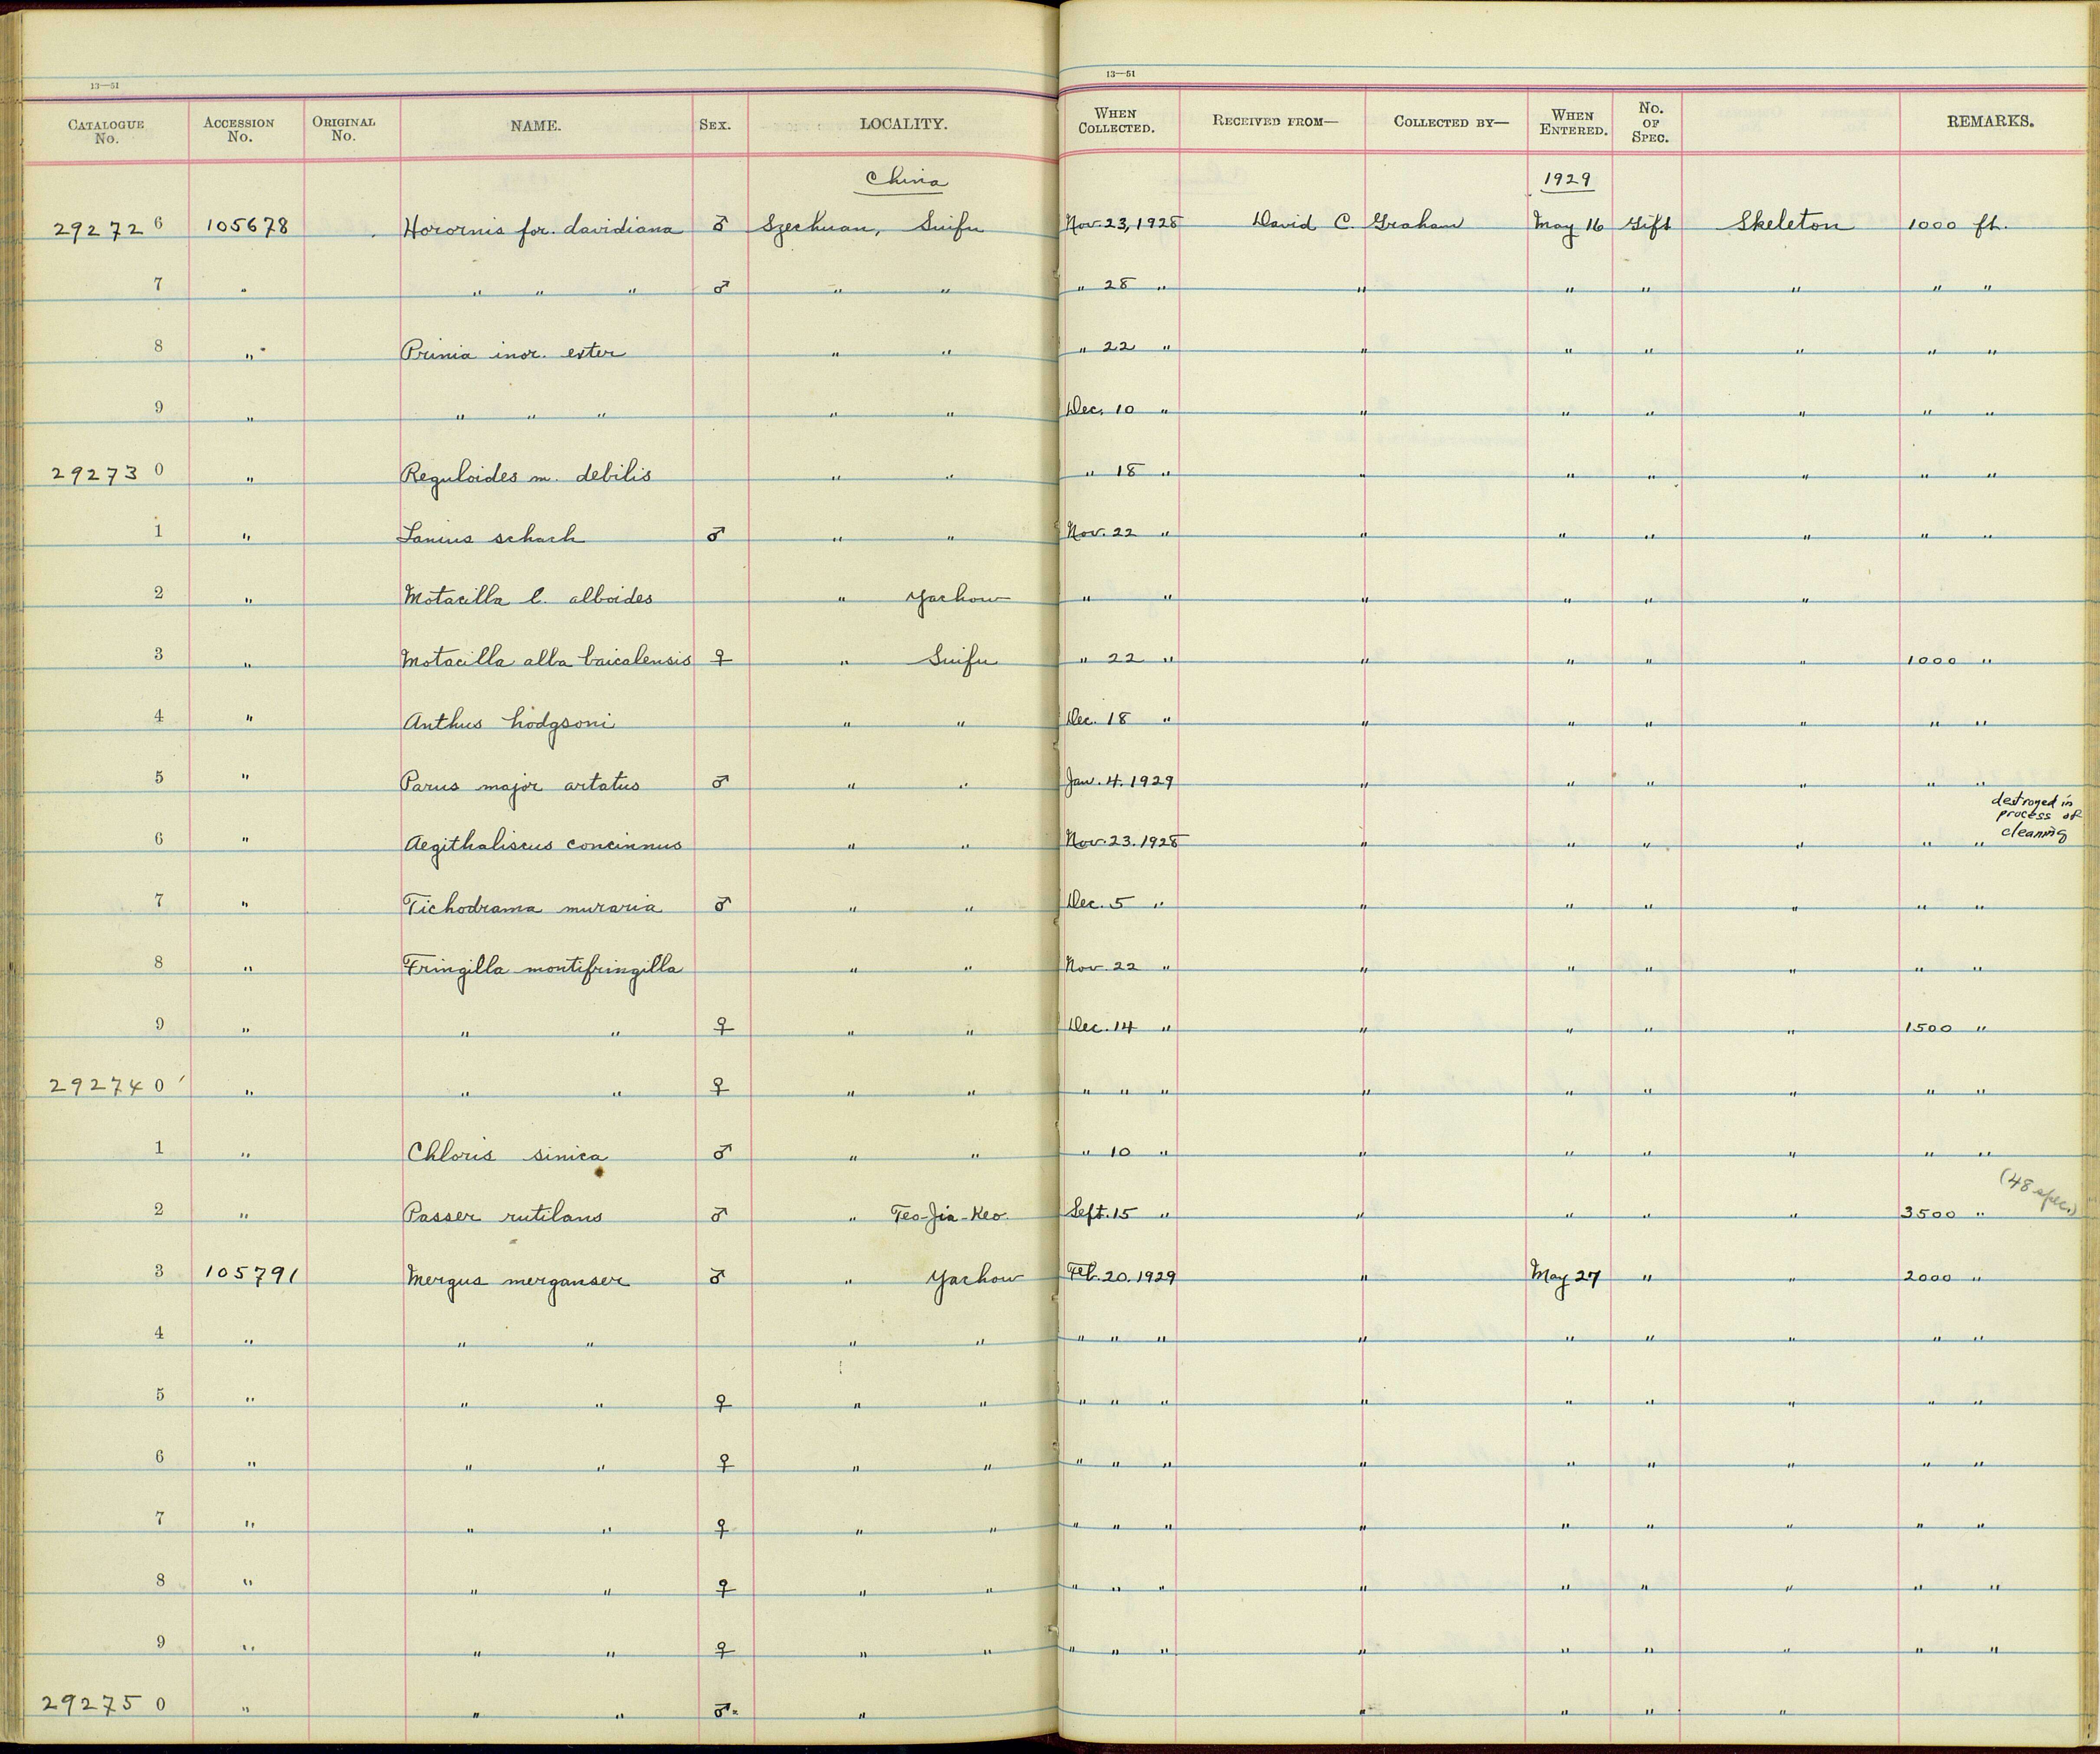 13—51
13—51
CATALOGUE No. ACCESSION No. ORIGINAL No. NAME. SEX. LOCALITY. WHEN COLLECTED. RECEIVED FROM— COLLECTED BY— WHEN ENTERED. No. OF SPEC. REMARKS.
China 1929
292726 105678 Horornis for. davidiana ♂ Szechuan, Suifu Nov. 23, 1928 David C. Graham May 16 Gift Skeleton 1000 ft.
7 " " " " ♂ " " " 28 " " " " " " "
8 " Prinia inor. exter " " " 22 " " " " " " "
9 " " " " " " Dec. 10 " " " " " " "
292730 " Reguloides m. debilis " " " 18 " " " " " " "
1 " Lanius schach ♂ " " Nov. 22 " " " " " " "
2 " Motacilla l. alboides " Yachow " " " " " "
3 " Motacilla alba baicalensis ♀ " Suifu " 22 " " " " " 1000 "
4 " Anthus hodgsoni " " Dec. 18 " " " " " " "
5 " Parus major artatus ♂ " " Jan. 4. 1929 " " " " " "
6 " Aegithaliscus concinnus " " Nov. 23. 1928 " " " " " " destroyed in process of cleaning
7 " Tichodroma muraria ♂ " " Dec. 5 " " " " " " "
8 " Fringilla montifringilla " " Nov. 22 " " " " " " "
9 " " " ♀ " " Dec. 14 " " " " " 1500 "
292740 " " " ♀ " " " " " " " " " " "
1 " Chloris sinica ♂ " " " 10 " " " " " " "
2 " Passer rutilans ♂ " Teo-Jia-Keo Sept. 15 " " " " " 3500 " (48 spec.)
3 105791 Mergus merganser ♂ " Yachow Feb. 20. 1929 " May 27 " " 2000 "
4 " " " " " " " " " " " " " "
5 " " " ♀ " " " " " " " " " " "
6 " " " ♀ " " " " " " " " " " "
7 " " " ♀ " " " " " " " " " " "
8 " " " ♀ " " " " " " " " " " "
9 " " " ♀ " " " " " " " " " " "
292750 " " " ♂ " " " " "